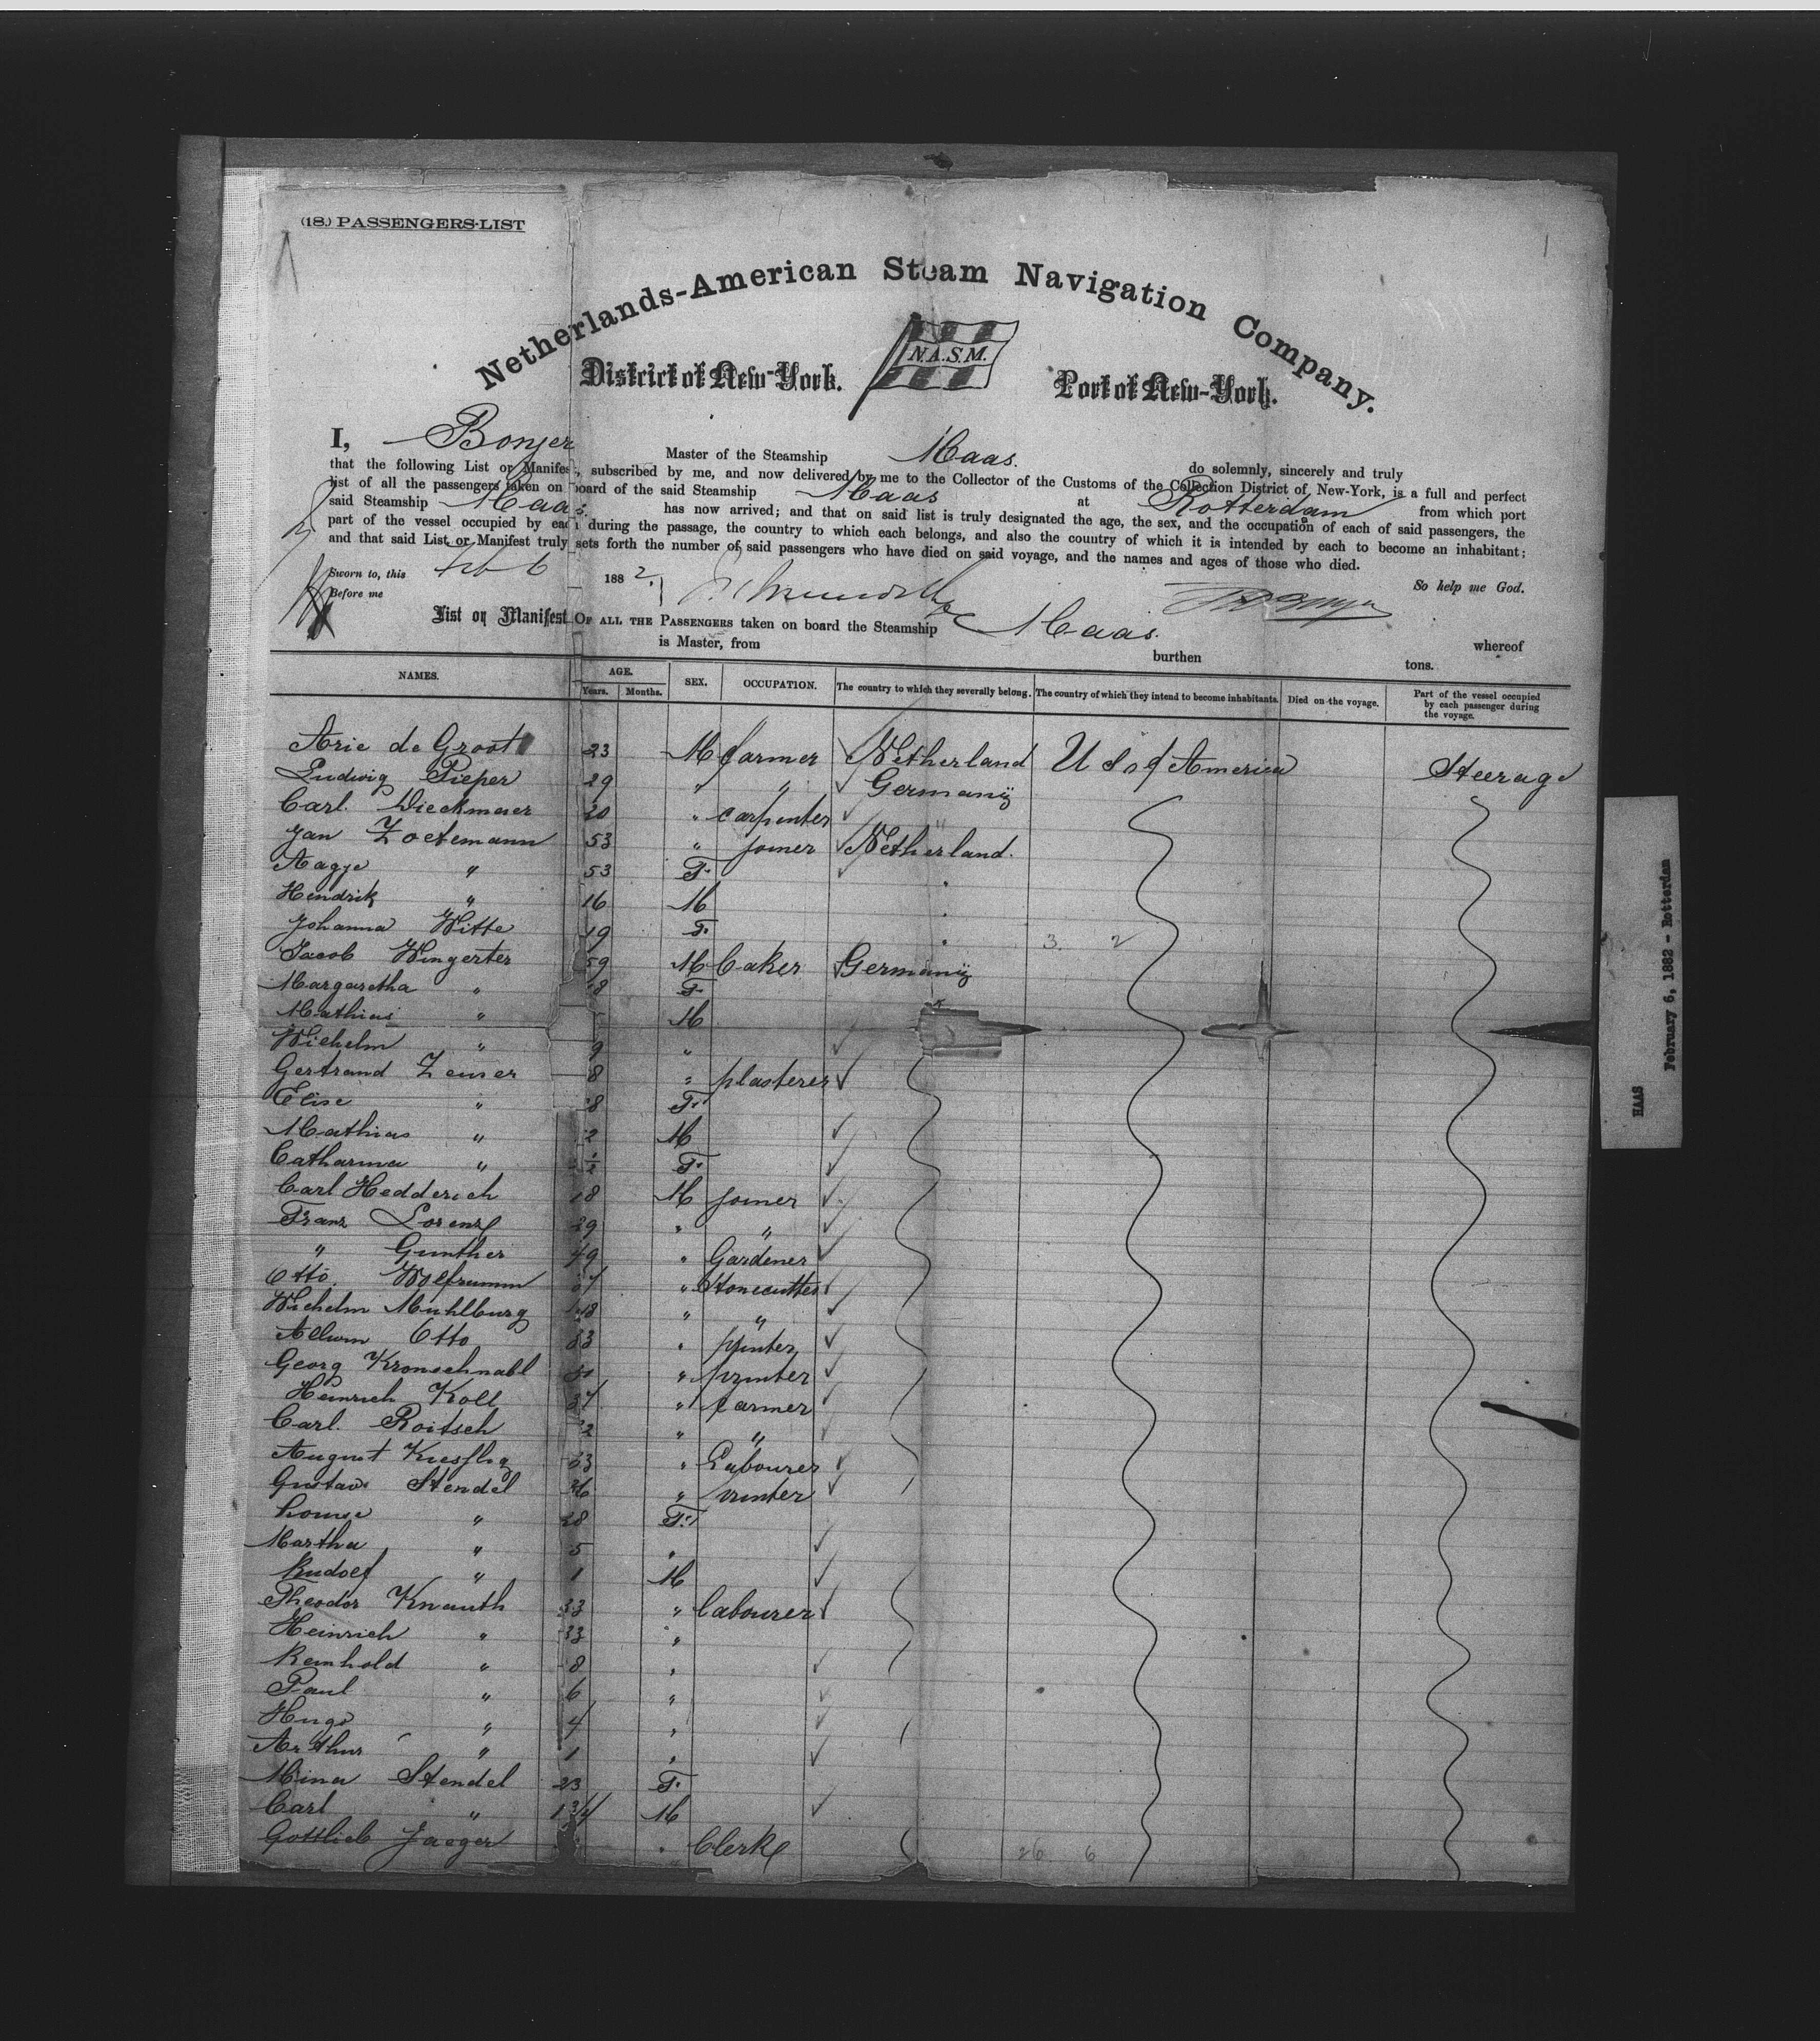 (18.) PASSENGERS-LIST
1
Netherlands-American Steam Navigation Company.
N.A.S.M.
District of New-York. Port of New-York.
I, Bonjer Master of the Steamship Maas. do solemnly, sincerely and truly
that the following List or Manifest, subscribed by me, and now delivered by me to the Collector of the Customs of the Collection District of New-York, is a full and perfect
list of all the passengers taken on board of the said Steamship Maas at Rotterdam from which port
said Steamship Maas. has now arrived; and that on said list is truly designated the age, the sex, and the occupation of each of said passengers, the
part of the vessel occupied by each during the passage, the country to which each belongs, and also the country of which it is intended by each to become an inhabitant;
and that said List or Manifest truly sets forth the number of said passengers who have died on said voyage, and the names and ages of those who died.
Sworn to, this Feb 6 1882. So help me God.
Before me
List or Manifest OF ALL THE PASSENGERS taken on board the Steamship Maas. whereof
is Master, from burthen tons.
NAMES. AGE. Years. Months. SEX. OCCUPATION. The country to which they severally belong. The country of which they intend to become inhabitants. Died on the voyage. Part of the vessel occupied by each passenger during the voyage.
Arie de Groot 23 M farmer Netherland U S of America Steerage
Ludwig Pieper 29 " " Germany
Carl Dieckmaer 20 " carpenter "
Jan Zoetemann 53 " joiner Netherland.
Aagje " 53 F.
Hendrik " 16 M
Johanna Witte 19 F. 3. 2
Jacob Wingerter 59 M baker Germany
Margaretha " 8 F.
Mathias " M
Wilhelm " 9 "
Gertrand Zenser 8 " plasterer
Elise " 28 F.
Mathias " 2 M
Catharina " 1/2 F.
Carl Hedderich 18 M joiner
Franz Lorenz 29 " "
" Gunther 49 " Gardener
Otto Wolframm " Stonecutter
Wilhelm Muhlburg 48 " "
Allwin Otto 33 " printer
Georg Kronschnabl " printer
Heinrich Koll 37 " farmer
Carl. Roitsch 2 " "
August 33 " Labourer
Gustav Stendel 36 " printer
Louise " 28 F.
Martha " 5 "
Rudolf " 1 M
Theodor Knauth 33 " labourer
Heinrich " 33 "
Reinhold " 8 "
Paul " 6 "
Hugo " 4 "
Arthur " 1 "
Mina Stendel 23 F.
Carl " 1 3/4 M
Gottlieb Jaeger " Clerk 26. 6
HAAS
February 6, 1882 - Rotterdam